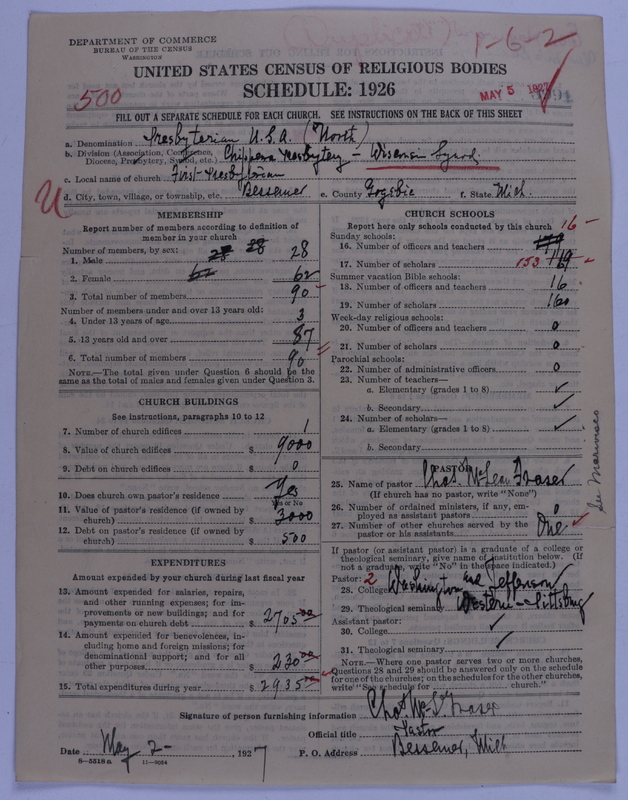 DEPARTMENT OF COMMERCE
BUREAU OF THE CENSUS
WASHINGTON
1-6-2
UNITED STATES CENSUS OF RELIGIOUS BODIES
SCHEDULE: 1926
500
MAY 5 1927
FILL OUT A SEPARATE SCHEDULE FOR EACH CHURCH. SEE INSTRUCTIONS ON THE BACK OF THIS SHEET
a. Denomination Presbyterian U.S.A. (North)
b. Division (Association, Conference, Diocese, Presbytery, Synod, etc.) Chippewa Presbytery - Wisconsin Synod.
c. Local name of church First Presbyterian
d. City, town, village, or township, etc. Bessemer e. County Gogebic f. State Mich.
MEMBERSHIP
Report number of members according to definition of
member in your church
Number of members, by sex:
1. Male 28 28 28
2. Female 62 62
3. Total number of members 90
Number of members under and over 13 years old:
4. Under 13 years of age 3
5. 13 years old and over 87
6. Total number of members 90
NOTE.—The total given under Question 6 should be the
same as the total of males and females given under Question 3.
CHURCH BUILDINGS
See instructions, paragraphs 10 to 12
7. Number of church edifices 1
8. Value of church edifices $ 9000
9. Debt on church edifices $ 0
10. Does church own pastor's residence Yes
Yes or No
11. Value of pastor's residence (if owned by
church) $ 3000
12. Debt on pastor's residence (if owned by
church) $ 500
EXPENDITURES
Amount expended by your church during last fiscal year
13. Amount expended for salaries, repairs,
and other running expenses; for im-
provements or new buildings; and for
payments on church debt $ 2705 00
14. Amount expended for benevolences, in-
cluding home and foreign missions; for
denominational support; and for all
other purposes $ 230 00
15. Total expenditures during year $ 2935 00
CHURCH SCHOOLS
Report here only schools conducted by this church 16 -
Sunday schools:
16. Number of officers and teachers
17. Number of scholars 153
Summer vacation Bible schools:
18. Number of officers and teachers 16
19. Number of scholars 160
Week-day religious schools:
20. Number of officers and teachers 0
21. Number of scholars 0
Parochial schools:
22. Number of administrative officers 0
23. Number of teachers—
a. Elementary (grades 1 to 8) ✓
b. Secondary ✓
24. Number of scholars—
a. Elementary (grades 1 to 8) ✓
b. Secondary
PASTOR
25. Name of pastor Chas. McLean Fraser
(If church has no pastor, write "None")
26. Number of ordained ministers, if any, em-
ployed as assistant pastors 0
27. Number of other churches served by the
pastor or his assistants One ✓
See Marenisco
If pastor (or assistant pastor) is a graduate of a college or
theological seminary, give name of institution below. (If
not a graduate, write "No" in the space indicated.)
Pastor: 2
28. College Washington and Jefferson
29. Theological seminary Western - Pittsburg
Assistant pastor:
30. College ✓
31. Theological seminary ✓
NOTE.—Where one pastor serves two or more churches,
Questions 28 and 29 should be answered only on the schedule
for one of the churches; on the schedules for the other churches,
write "See schedule for church."
Signature of person furnishing information Chas. McL Fraser
Official title Pastor
Date May 2 - , 1927 P. O. Address Bessemer, Mich
8—5518 a 11—9064